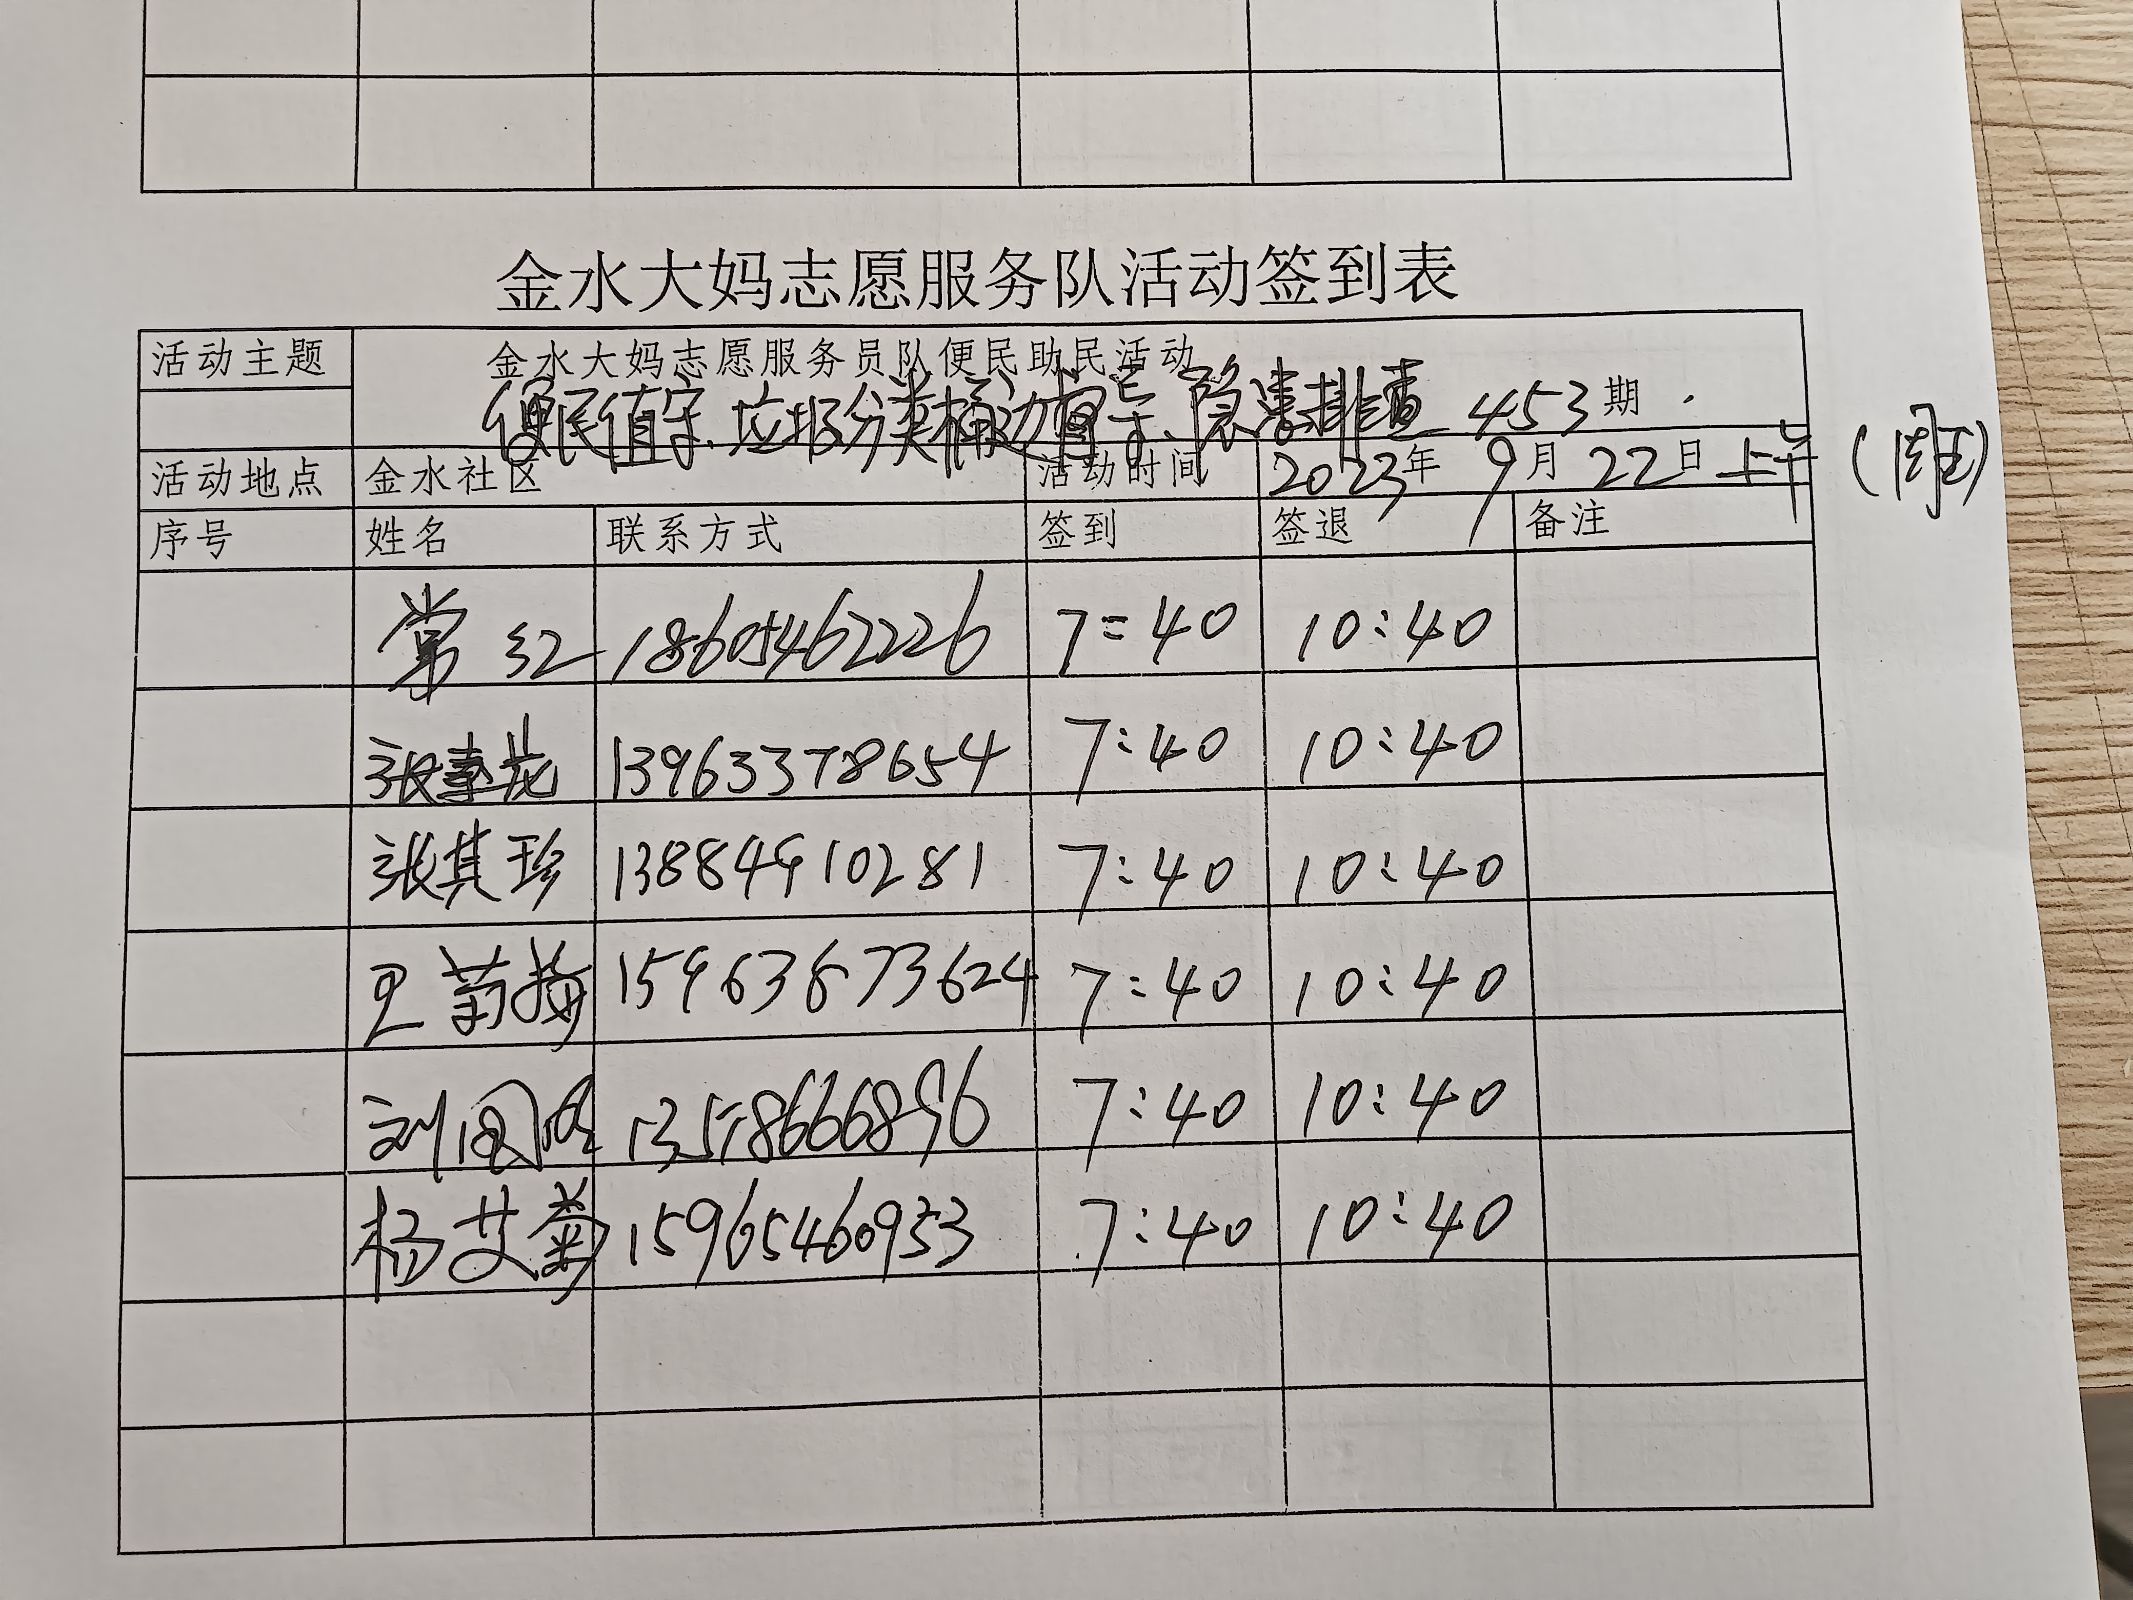 金水大妈志愿服务队活动签到表
活动主题 金水大妈志愿服务员队便民助民活动
便民值守、垃圾分类桶边督导、隐患排查 453期
活动地点 金水社区 活动时间 2023年9月22日上午(周五)
序号 姓名 联系方式 签到 签退 备注
常红 18605462226 7:40 10:40
张 花 13963378654 7:40 10:40
张其珍 13884910281 7:40 10:40
王菊梅 15963673624 7:40 10:40
刘 7:40 10:40
杨艾菊 15965460953 7:40 10:40